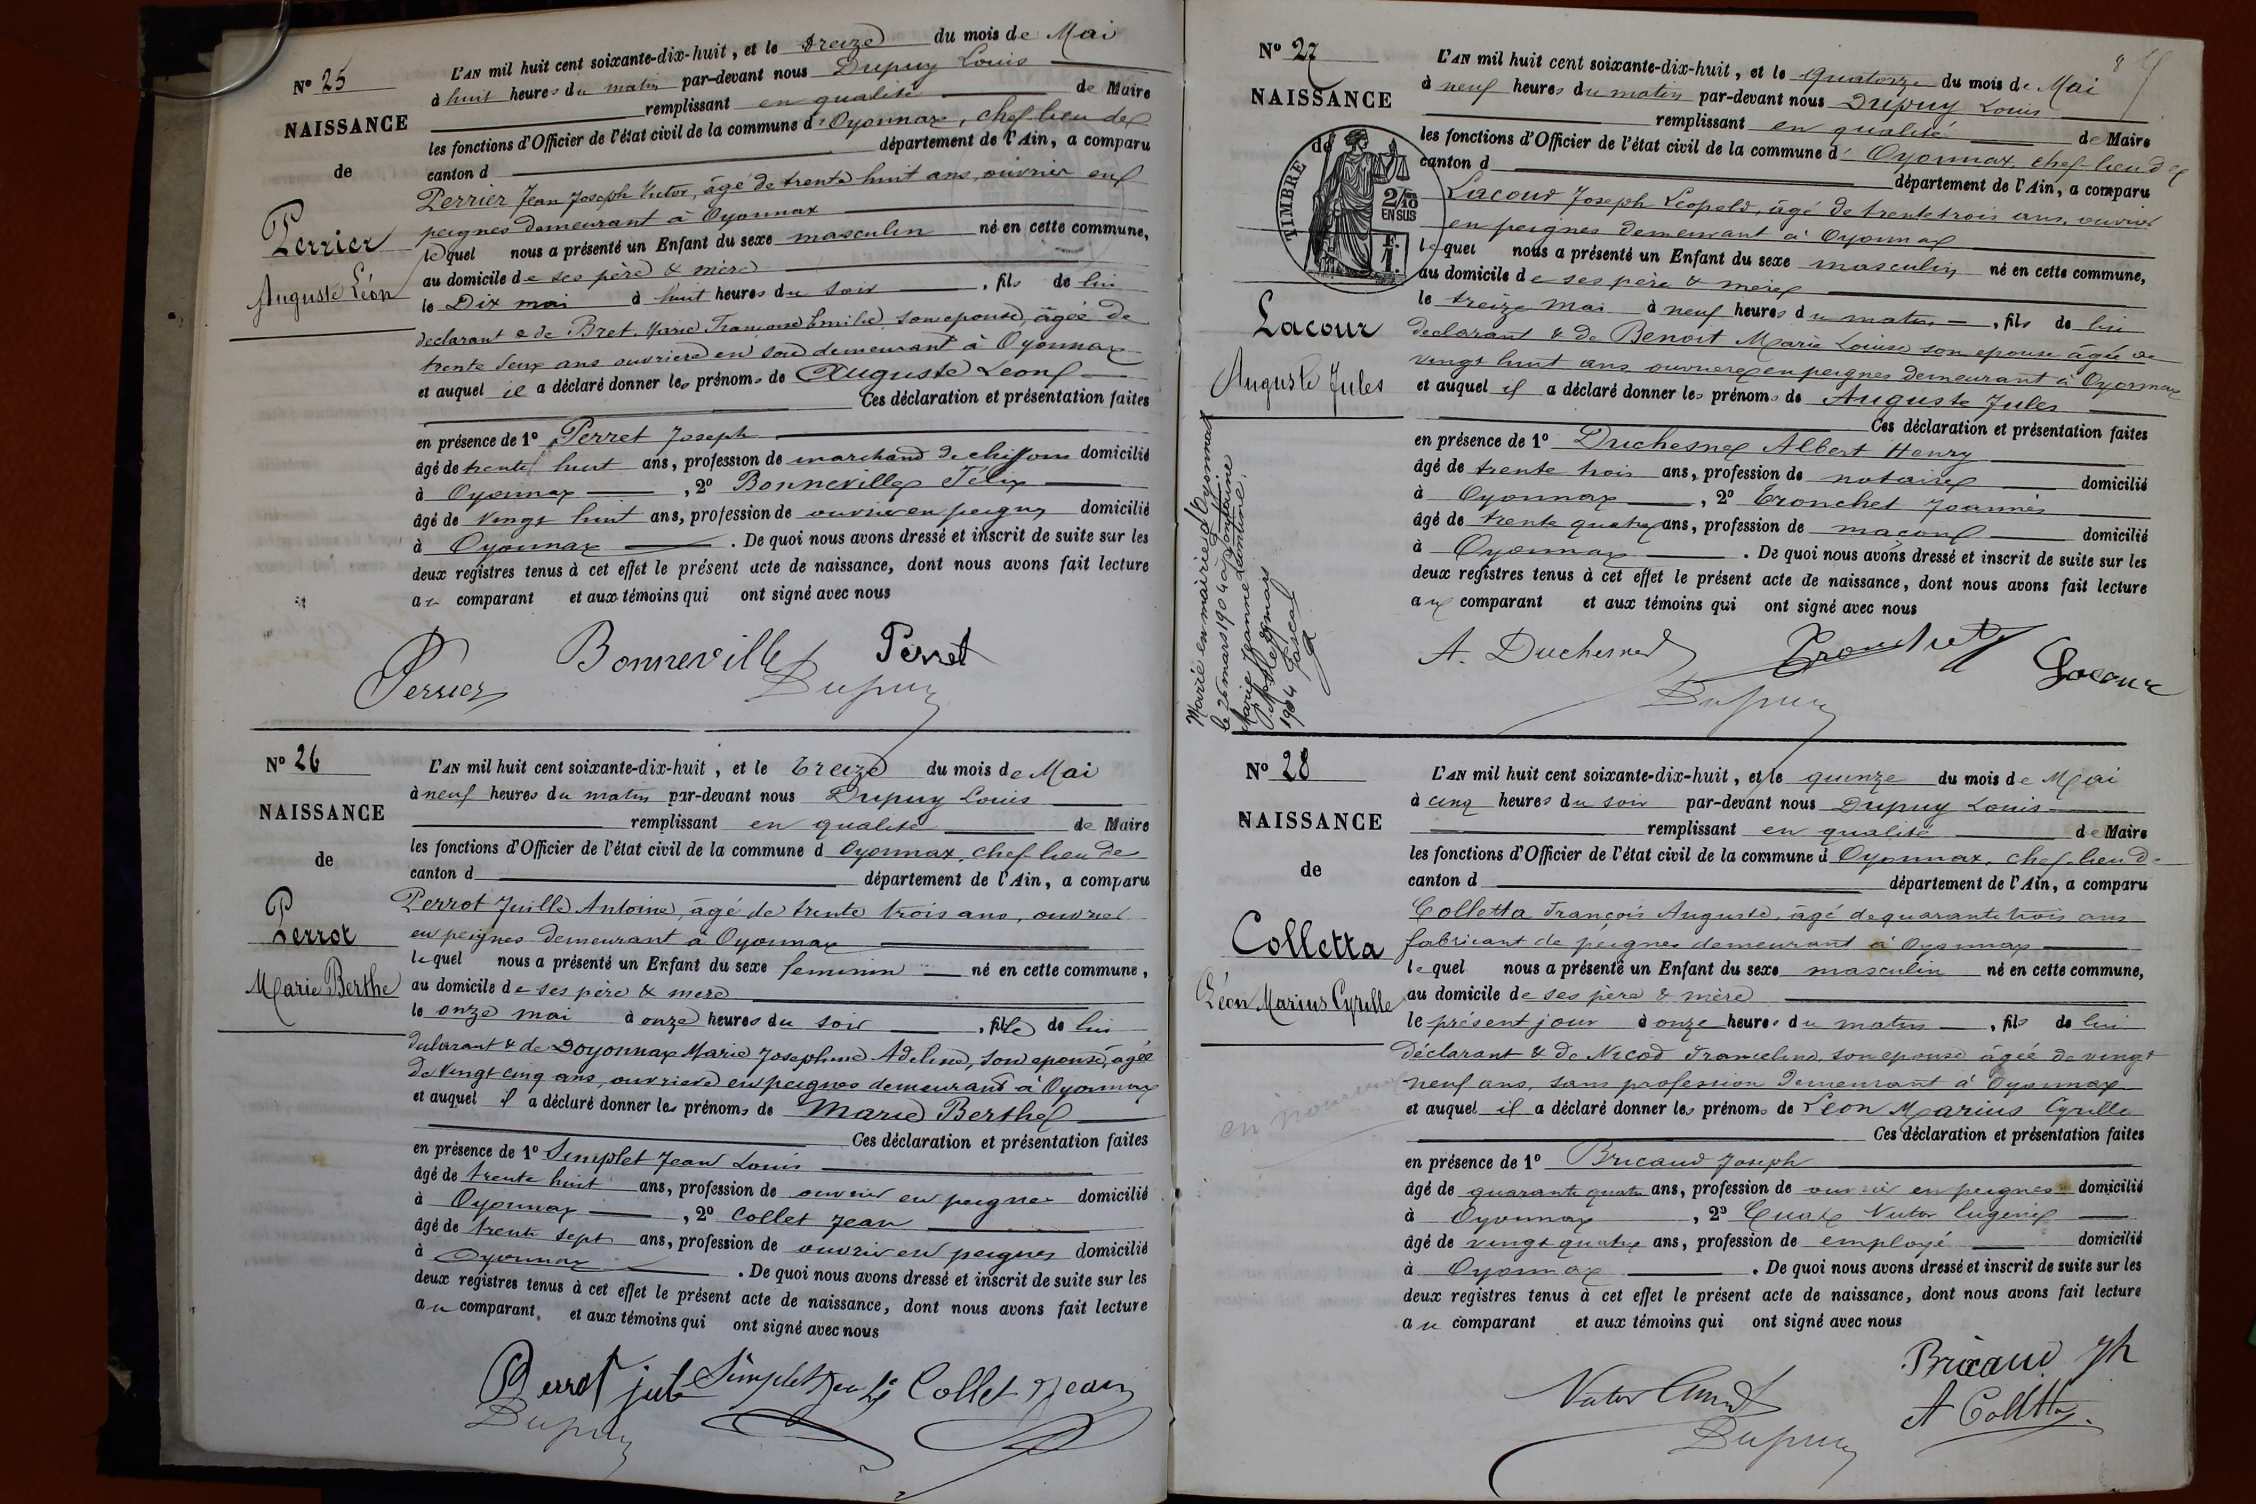 Nº 25
NAISSANCE
de
Perrier
Auguste Léon
L'AN mil huit cent soixante-dix-huit, et le treize du mois de Mai
à huit heures du matin par-devant nous Dupuy Louis
remplissant en qualité de Maire
les fonctions d'Officier de l'état civil de la commune d'Oyonnax, chef lieu de
canton d département de l'Ain, a comparu
Perrier Jean Joseph Victor, âgé de trente huit ans, ouvrier en
peignes demeurant à Oyonnax
lequel nous a présenté un Enfant du sexe masculin né en cette commune,
au domicile de ses père & mère
le Dix mai à huit heures du soir, fils de lui
declarant & de Bret, Marie Françoise Emilie, son epouse, âgée de
trente deux ans ouvriere en soie demeurant à Oyonnax
et auquel il a déclaré donner les prénoms de Auguste Leon
Ces déclaration et présentation faites
en présence de 1º Perret Joseph
âgé de trente huit ans, profession de marchand de chiffons domicilié
à Oyonnax, 2º Bonneville Félix
âgé de vingt huit ans, profession de ouvrier en peignes domicilié
à Oyonnax. De quoi nous avons dressé et inscrit de suite sur les
deux registres tenus à cet effet le présent acte de naissance, dont nous avons fait lecture
au comparant et aux témoins qui ont signé avec nous
Bonneville Perret
Perrier Dupuy
Nº 26
NAISSANCE
de
Perrot
Marie Berthe
L'AN mil huit cent soixante-dix-huit, et le treize du mois de Mai
à neuf heures du matin par-devant nous Dupuy Louis
remplissant en qualité de Maire
les fonctions d'Officier de l'état civil de la commune d Oyonnax, chef lieu de
canton d département de l'Ain, a comparu
Perrot Juille Antoine, âgé de trente trois ans, ouvrier
en peignes demeurant à Oyonnax
lequel nous a présenté un Enfant du sexe feminin né en cette commune,
au domicile de ses père & mere
le onze mai à onze heures du soir, fille de lui
declarant & de Doyonnax Marie Josephine Adeline, son epouse, agée
de vingt cinq ans, ouvriere en peignes demeurant à Oyonnax
et auquel il a déclaré donner les prénoms de Marie Berthe
Ces déclaration et présentation faites
en présence de 1º Simplet Jean Louis
âgé de trente huit ans, profession de ouvrier en peignes domicilié
à Oyonnax, 2º Collet Jean
âgé de trente sept ans, profession de ouvrier en peignes domicilié
à Oyonnax. De quoi nous avons dressé et inscrit de suite sur les
deux registres tenus à cet effet le présent acte de naissance, dont nous avons fait lecture
au comparant, et aux témoins qui ont signé avec nous
Perrot Simplet Collet Jean
Dupuy
Nº 27
NAISSANCE
de
TIMBRE
2/10
EN SUS
F.
1.
Lacour
Auguste Jules
Marié en mairie d'Oyonnax
le 26 mars 1904 à
Marie Jeanne Léontine.
mars
1904
L'AN mil huit cent soixante-dix-huit, et le quatorze du mois de Mai
à neuf heures du matin par-devant nous Dupuy Louis
remplissant en qualité de Maire
les fonctions d'Officier de l'état civil de la commune d' Oyonnax, chef lieu de
canton d département de l'Ain, a comparu
Lacour Joseph Leopold, âgé de trente trois ans, ouvrier
en peignes demeurant à Oyonnax
lequel nous a présenté un Enfant du sexe masculin né en cette commune,
au domicile de ses père & mère
le treize mai à neuf heures du matin, fils de lui
declarant & de Benoit Marie Louise son epouse âgée de
vingt huit ans ouvriere en peignes demeurant à Oyonnax
et auquel il a déclaré donner les prénoms de Auguste Jules
Ces déclaration et présentation faites
en présence de 1º Duchesne Albert Henry
âgé de trente trois ans, profession de notaire domicilié
à Oyonnax, 2º Tronchet Joannès
âgé de trente quatre ans, profession de maçon domicilié
à Oyonnax. De quoi nous avons dressé et inscrit de suite sur les
deux registres tenus à cet effet le présent acte de naissance, dont nous avons fait lecture
au comparant et aux témoins qui ont signé avec nous
A. Duchesne Tronchet Lacour
Dupuy
Nº 28
NAISSANCE
de
Colletta
Léon Marius Cyrille
L'AN mil huit cent soixante-dix-huit, et le quinze du mois de Mai
à cinq heures du soir par-devant nous Dupuy Louis
remplissant en qualité de Maire
les fonctions d'Officier de l'état civil de la commune d Oyonnax, chef-lieu de
canton d département de l'Ain, a comparu
Colletta François Auguste, âgé de quarante trois ans
fabricant de peignes demeurant à Oyonnax
lequel nous a présenté un Enfant du sexe masculin né en cette commune,
au domicile de ses père & mère
le présent jour à onze heures du matin, fils de lui
déclarant & de Nicod Franceline, son epouse âgée de vingt
neuf ans, sans profession demeurant à Oyonnax
et auquel il a déclaré donner les prénoms de Léon Marius Cyrille
Ces déclaration et présentation faites
en présence de 1º Bricaud Joseph
âgé de quarante quatre ans, profession de ouvrier en peignes domicilié
à Oyonnax, 2º Victor Eugène
âgé de vingt quatre ans, profession de employé domicilié
à Oyonnax. De quoi nous avons dressé et inscrit de suite sur les
deux registres tenus à cet effet le présent acte de naissance, dont nous avons fait lecture
au comparant et aux témoins qui ont signé avec nous
Bricaud Jh
Victor A Colletta
Dupuy